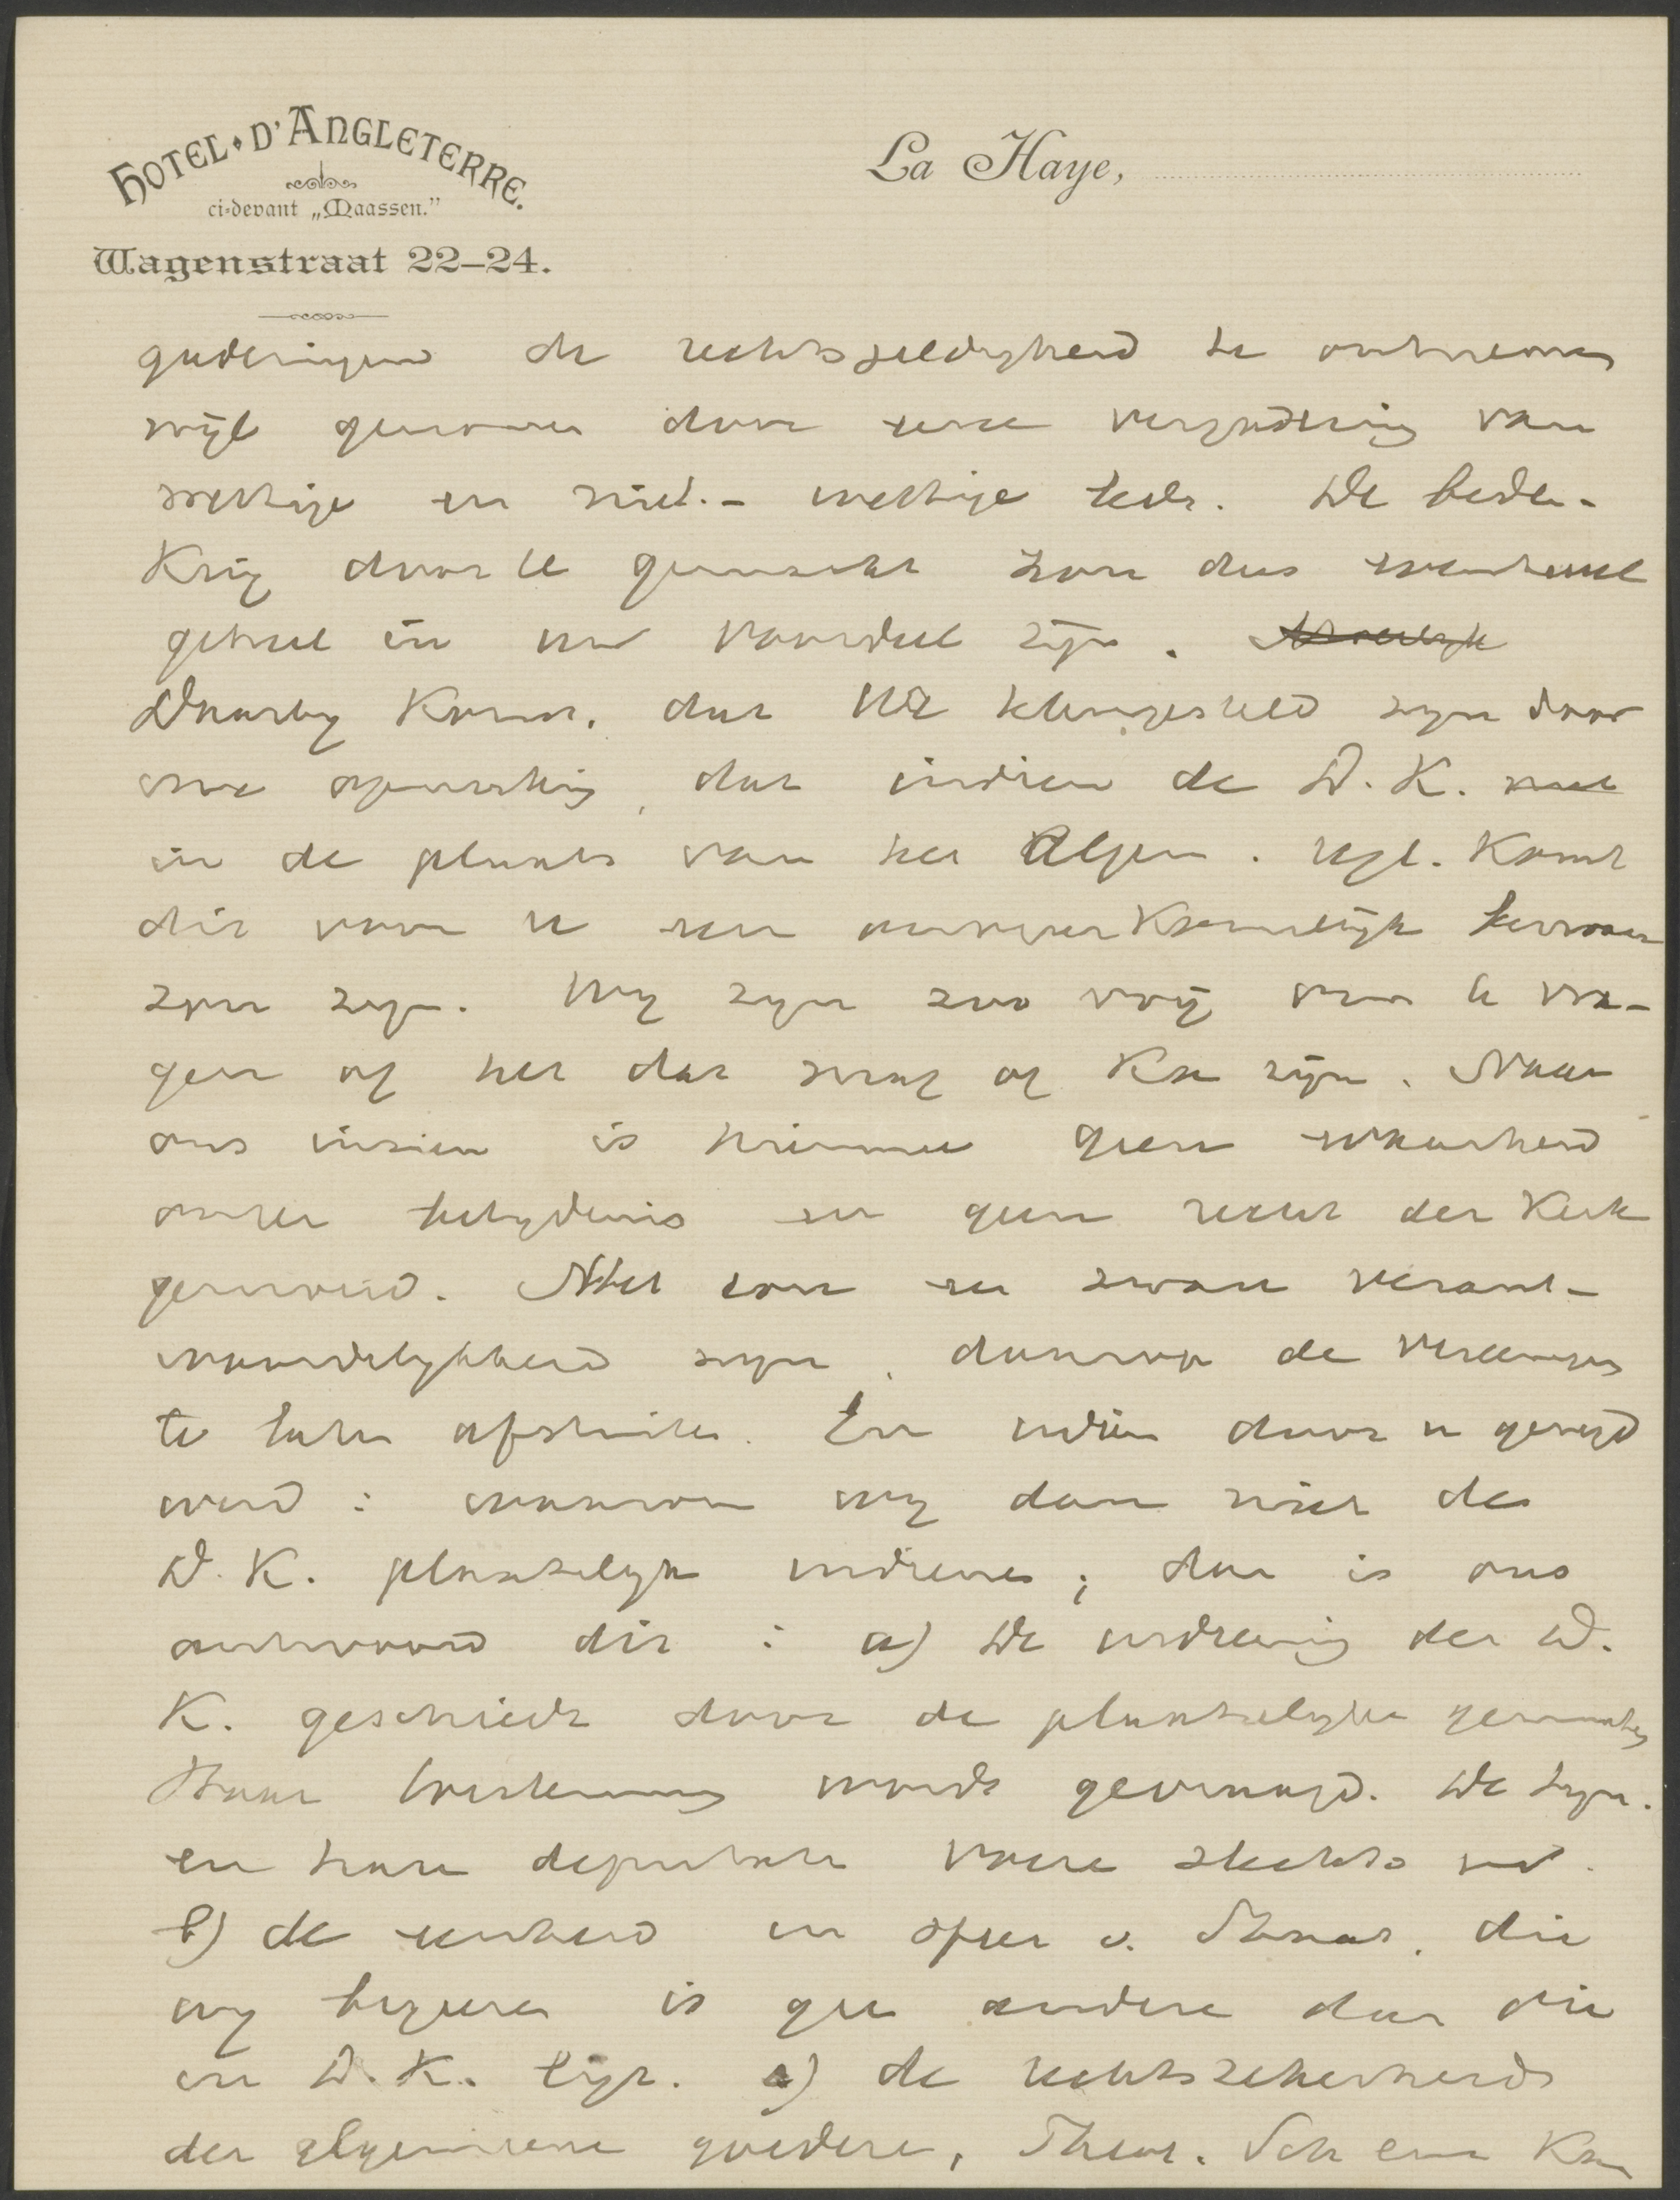 HOTEL D'ANGLETERRE.
ci-devant „Maassen."
Wagenstraat 22–24.
La Haye,
gaderingen de rechtsgeldigheid te ontnemen
wijl genomen door eene vergadering van
wettige en niet.- wettige leden. De beden-
king door U gemaakt zou dus eventueel
geheel in uw voordeel zijn.
Daarby komt, dat Wij teleurgesteld zyn door
uwe opmerking, dat indien de D. K. niet
in de plaats van het Algem. regl. komt
dit voor U een onoverkomelijk bezwaar
zou zyn. Wy zyn zoo vrij om U te vra-
gen of het dat mag of kan zijn. Naar
ons inzien is hiermee geen waarheid
onzer belydenis en geen recht der Kerk
gemoeid. Het zou een zware verant-
woordelykheid zyn, daarop de vereeniging
te laten afstuiten. En indien door u gevraagd
werd: waarom wy dan niet de
D. K. plaatselyk indienen; dan is ons
antwoord dit: a) De indiening der D.
K. geschiedt door de plaatselyke gemeenten
Haar toestemming wordt gevraagd. De Syn.
en hare deputaten voeren slechts uit.
b) de eenheid en sfeer v. Staat, die
wy begeeren is geen andere dan die
in D. K. ligt. c) de rechtszekerheid
der algemeene goederen, Theol. School en Kan